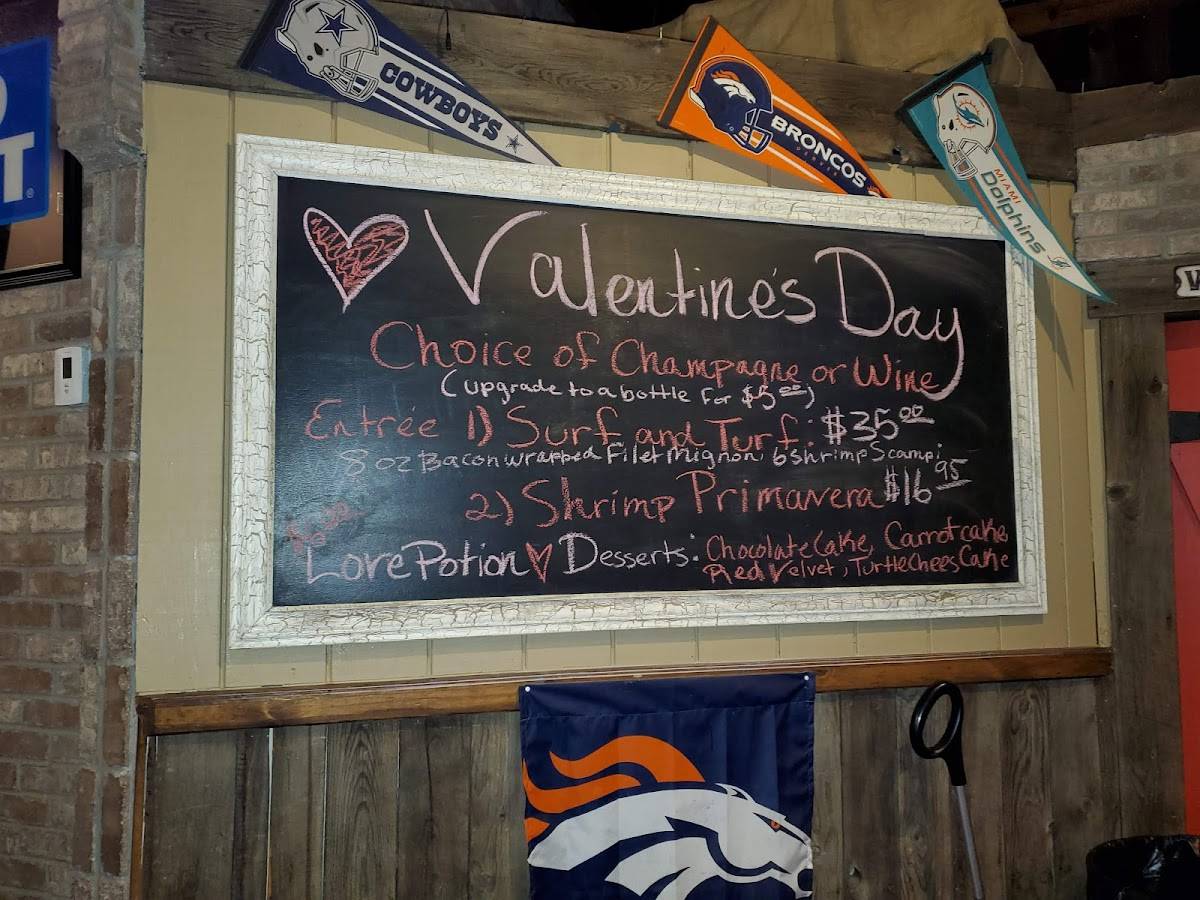 COWBOYS
BRONCOS
DENVER
MIAMI
Dolphins
Valentine's Day
Choice of Champagne or Wine
(upgrade to a bottle for $5.00)
Entrée 1) Surf and Turf: $35.00
8 oz Bacon wrapped Filet Mignon, 6 shrimp Scampi
2) Shrimp Primavera $16.95
Love Potion Desserts: Chocolate Cake, Carrot cake
Red Velvet, Turtle Chees Cake